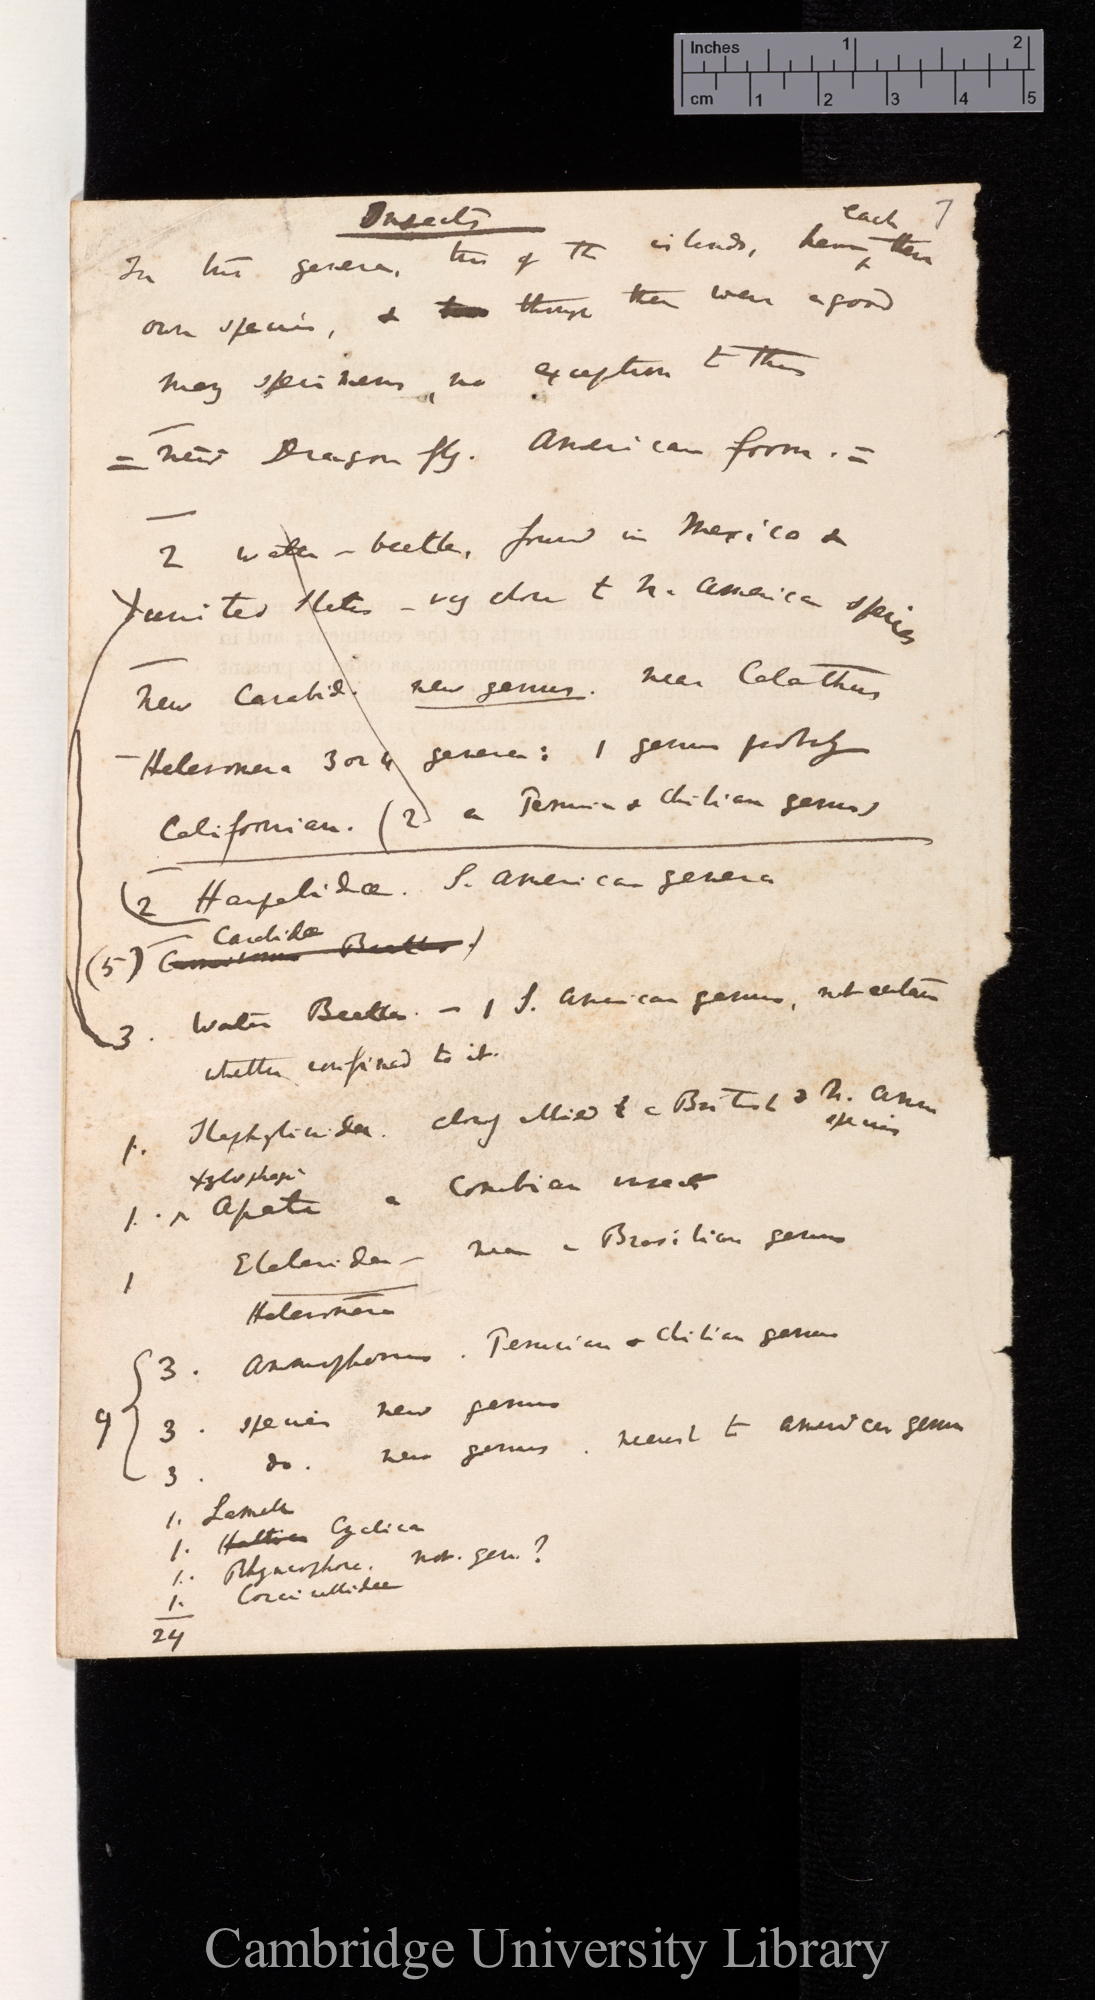 Inches 1 2
cm 1 2 3 4 5
7
Insects
In two genera, two of the islands, have each their
own species, & though there were a good
many specimens, no exception to this
= new Dragon fly. American form. =
2 water-beetles, found in Mexico &
united States - very close to N. American species
New Carabid. new genus. near Calathus
Heteromera 3 or 4 genera: 1 genus probably
Californian. (2 a Peruvian & Chilian genus)
2 Harpalidæ. S. American genera
(5) Carabidæ Beetles
3. Water Beetles. - 1 S. American genus, not certain
whether confined to it.
1. Staphylinidea. closely allied to a British & N. Amer
species
Xylophagi
1. Apate a Columbian insect
1 Elateridea - near a Brasilian genus
Heteromera
9 3. Ammophorus. Peruvian & Chilian genus
3. species new genus
3. do. new genus. nearest to American genus
1. Lamell
1. Haltica Cyclica
1. Rhyncophora. not. gen. ?
1. Coccinellidae
24
Cambridge University Library